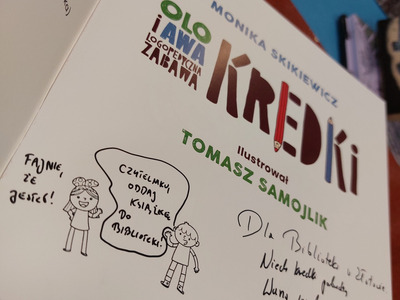 MONIKA SKIKIEWICZ
OLO
i AWA
LOGOPEDYCZNA
ZABAWA
KREDKi
Ilustrował
TOMASZ SAMOJLIK
FAJNIE,
ŻE
JESTEŚ!
CZYTELNIKU,
ODDAJ
KSIĄŻKĘ
DO
BIBLIOTEKI!
Dla Biblioteki w
Niech kredki